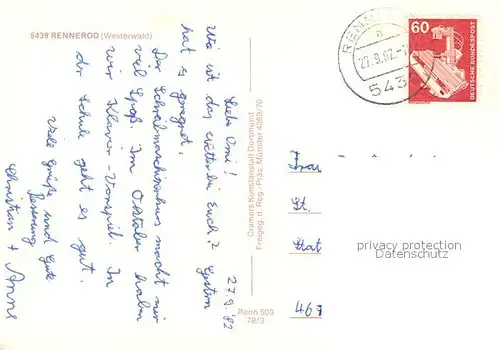 5439 RENNEROD (Westerwald)
27.9.82
Liebe Omi!
Wie ist das Wetter bei Euch? Gestern
hat es geregnet.
Der Schreibmaschinenkurs macht mir
viel Spaß. Im Oktober haben
wir Klavier-Vorspiel. In
der Schule geht es gut.
Viele Grüße und Gute
Besserung
Christian + Anne
Cramers Kunstanstalt Dortmund
Freigeg. d. Reg.-Präs. Münster 4269/70
Renn 503
78/3
RENN
a
27.9.82
543
60
DEUTSCHE BUNDESPOST
Frau
St.
privacy protection
Datenschutz
467